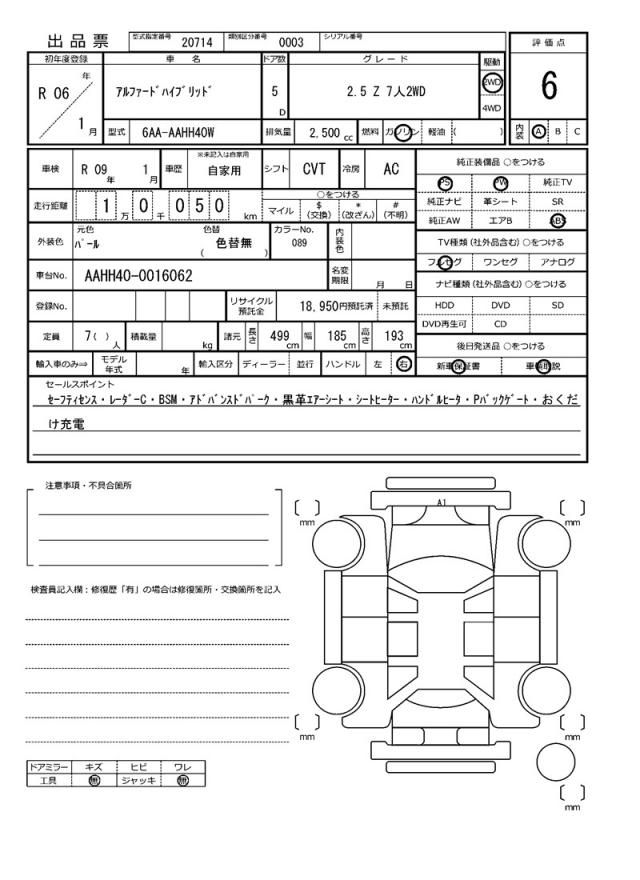 出品票 型式指定番号 20714 類別区分番号 0003 シリアル番号
評価点
初年度登録 車名 ドア数 グレード 駆動
R 06 年 1 月 アルファードハイブリッド 5 D 2.5 Z 7人2WD 2WD 4WD 6
型式 6AA-AAHH40W 排気量 2,500 cc 燃料 ガソリン 軽油 ( ) 内装 A B C
車検 R 09 年 1 月 車歴 ※未記入は自家用 自家用 シフト CVT 冷房 AC 純正装備品 ○をつける
PS PW 純正TV
走行距離 1 万 0 千 0 5 0 km ○をつける マイル $ (交換) * (改ざん) # (不明) 純正ナビ 革シート SR
純正AW エアB ABS
外装色 元色 パール 色替 ( 色替無 ) カラーNo. 089 内装色 TV種類 (社外品含む) ○をつける
フルセグ ワンセグ アナログ
車台No. AAHH40-0016062 名変期限 月 日 ナビ種類 (社外品含む) ○をつける
登録No. リサイクル預託金 18,950円預託済 未預託 HDD DVD SD
DVD再生可 CD
定員 7( ) 人 積載量 kg 諸元 長さ 499 cm 幅 185 cm 高さ 193 cm 後日発送品 ○をつける
輸入車のみ⇒ モデル年式 年 輸入区分 ディーラー 並行 ハンドル 左 右 新車保証書 車輌取説
セールスポイント
セーフティセンス・レーダーC・BSM・アドバンスドパーク・黒革エアーシート・シートヒーター・ハンドルヒータ・Pバックゲート・おくだ
け充電
注意事項・不具合箇所
A1
mm mm
検査員記入欄：修復歴「有」の場合は修復箇所・交換箇所を記入
mm mm
ドアミラー キズ ヒビ ワレ
工具 無 ジャッキ 無
mm